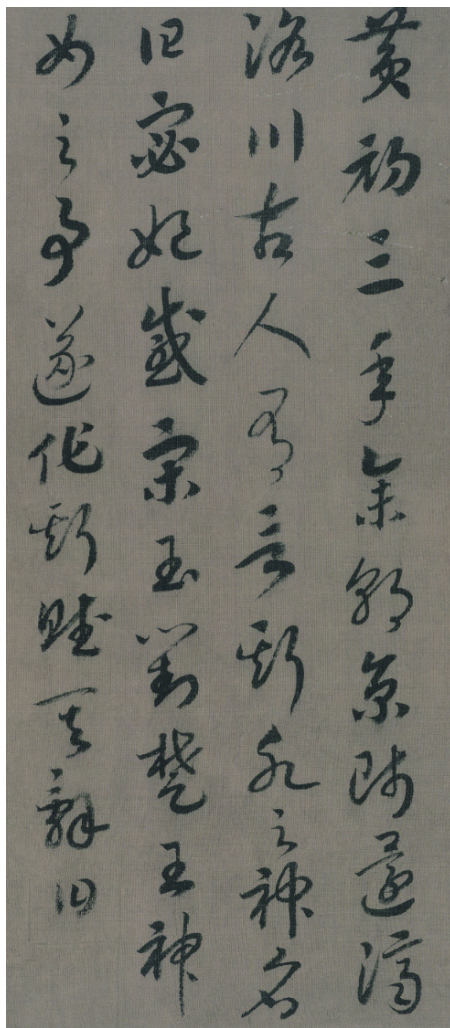 黄初三年余朝京師還濟
洛川古人有言斯水之神名
曰宓妃感宋玉對楚王神
女之事遂作斯賦其辭曰